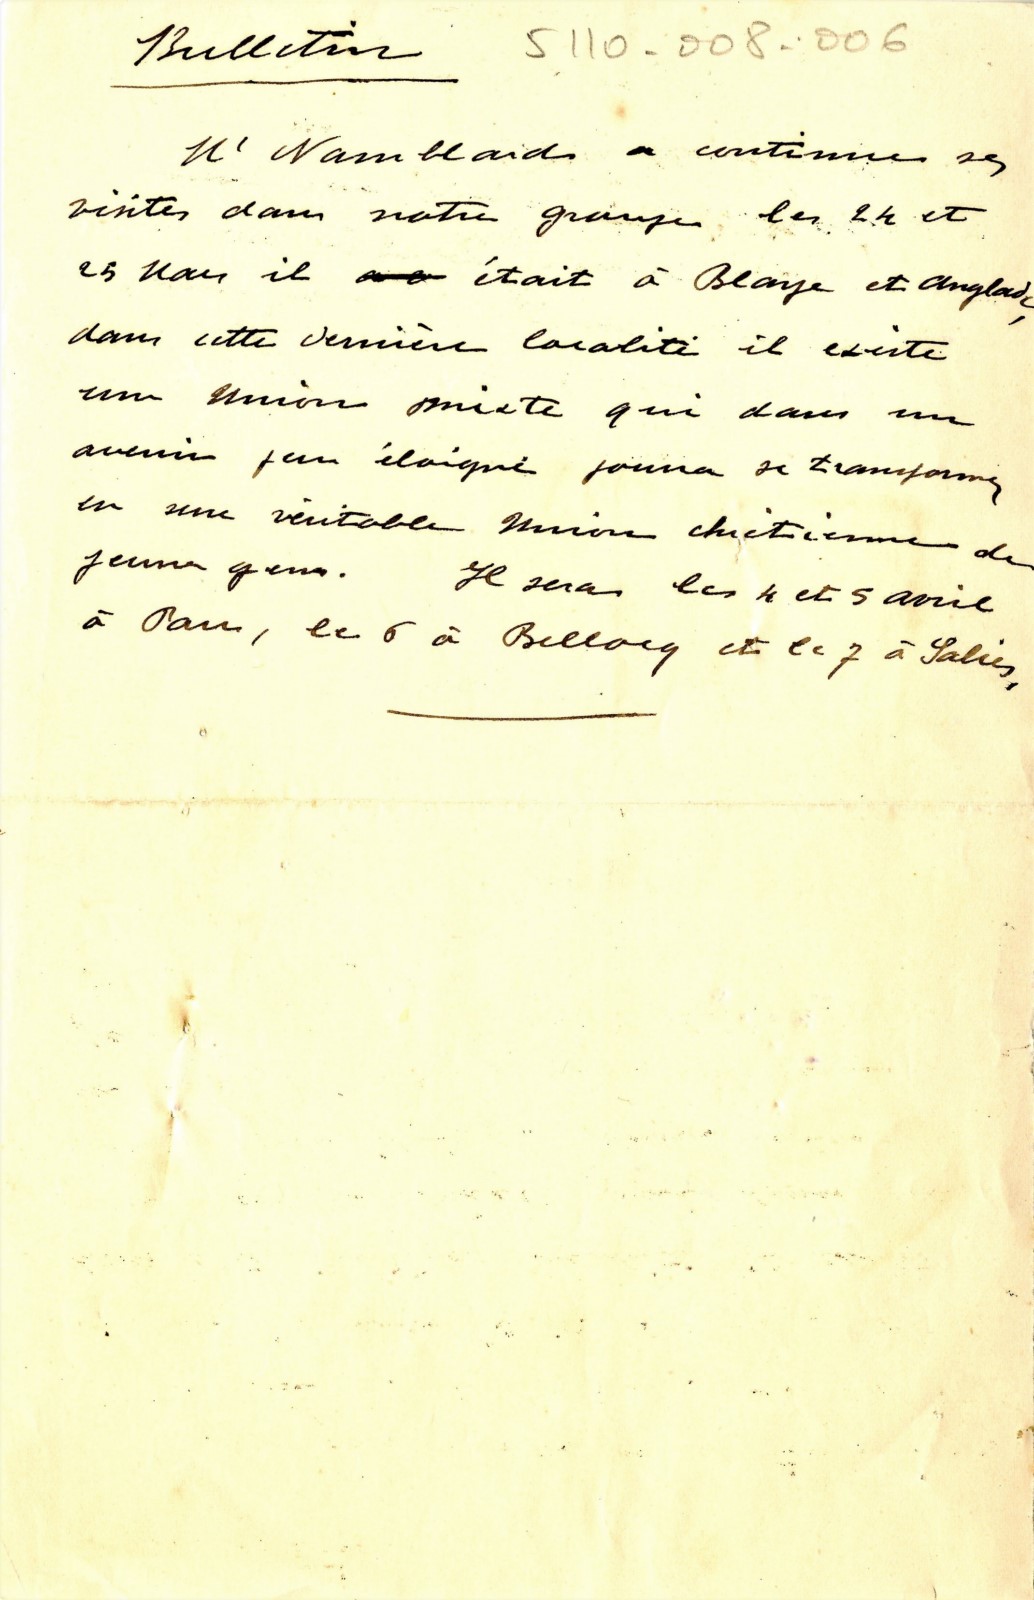 Bulletin 5110-008-006
Mr Namblard a continué ses
visites dans notre groupe les 24 et
25 Mars il était à Blaye et Anglade,
dans cette dernière localité il existe
une Union mixte qui dans un
avenir peu éloigné pourra se transformer
en une véritable Union chrétienne de
jeunes gens. Il sera les 4 et 5 avril
à Pau, le 6 à Bellocq et le 7 à Salies,